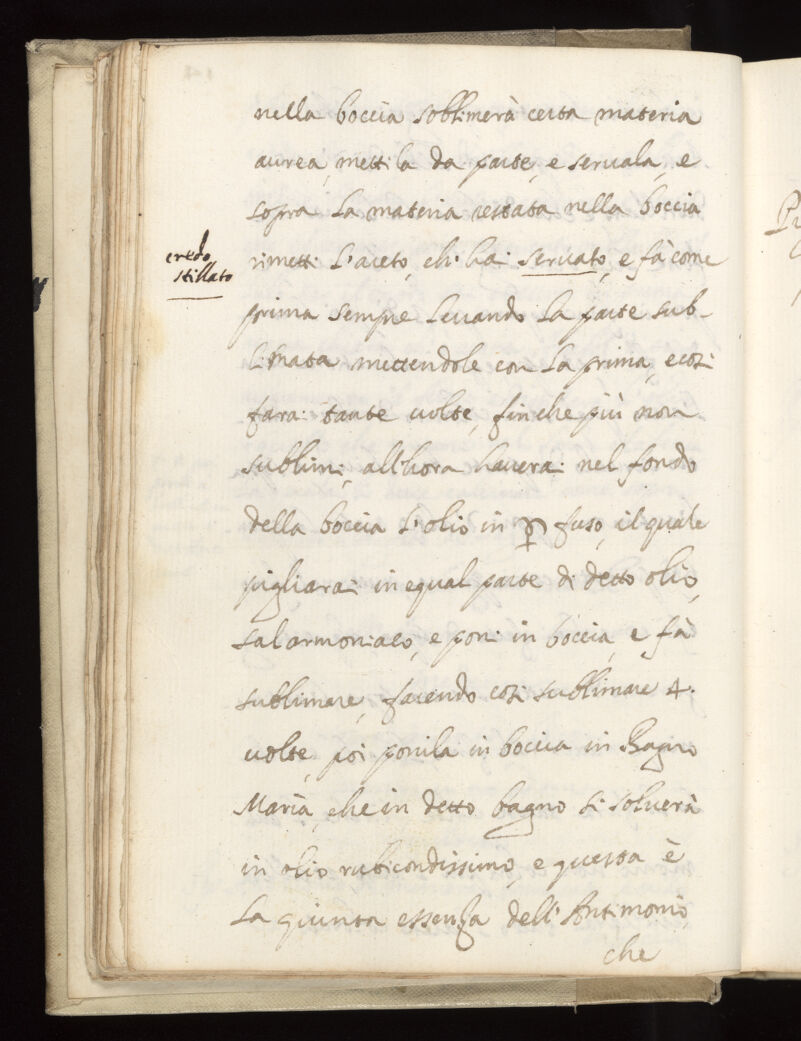 nella boccia soblimerà certa materia
aurea, mettila da parte, e servala, e
sopra La materia restata nella boccia
credo
stillato
rimetti L'aceto, ch'hai servato, e fà come
prima sempre Levando La parte sub-
limata mettendole con La prima, e così
farai tante volte, finche più non
sublimi, all'hora haverai nel fondo
della boccia L'olio in fuso, il quale
pigliarai in equal parte di detto olio,
salarmoniaco, e poni in boccia, e fà
sublimare, facendo così sublimare 4.
volte, poi ponila in boccia in Bagno
Maria, che in detto bagno si solverà
in olio rubicondissimo, e questa è
La quinta essenza dell'Antimonio,
che